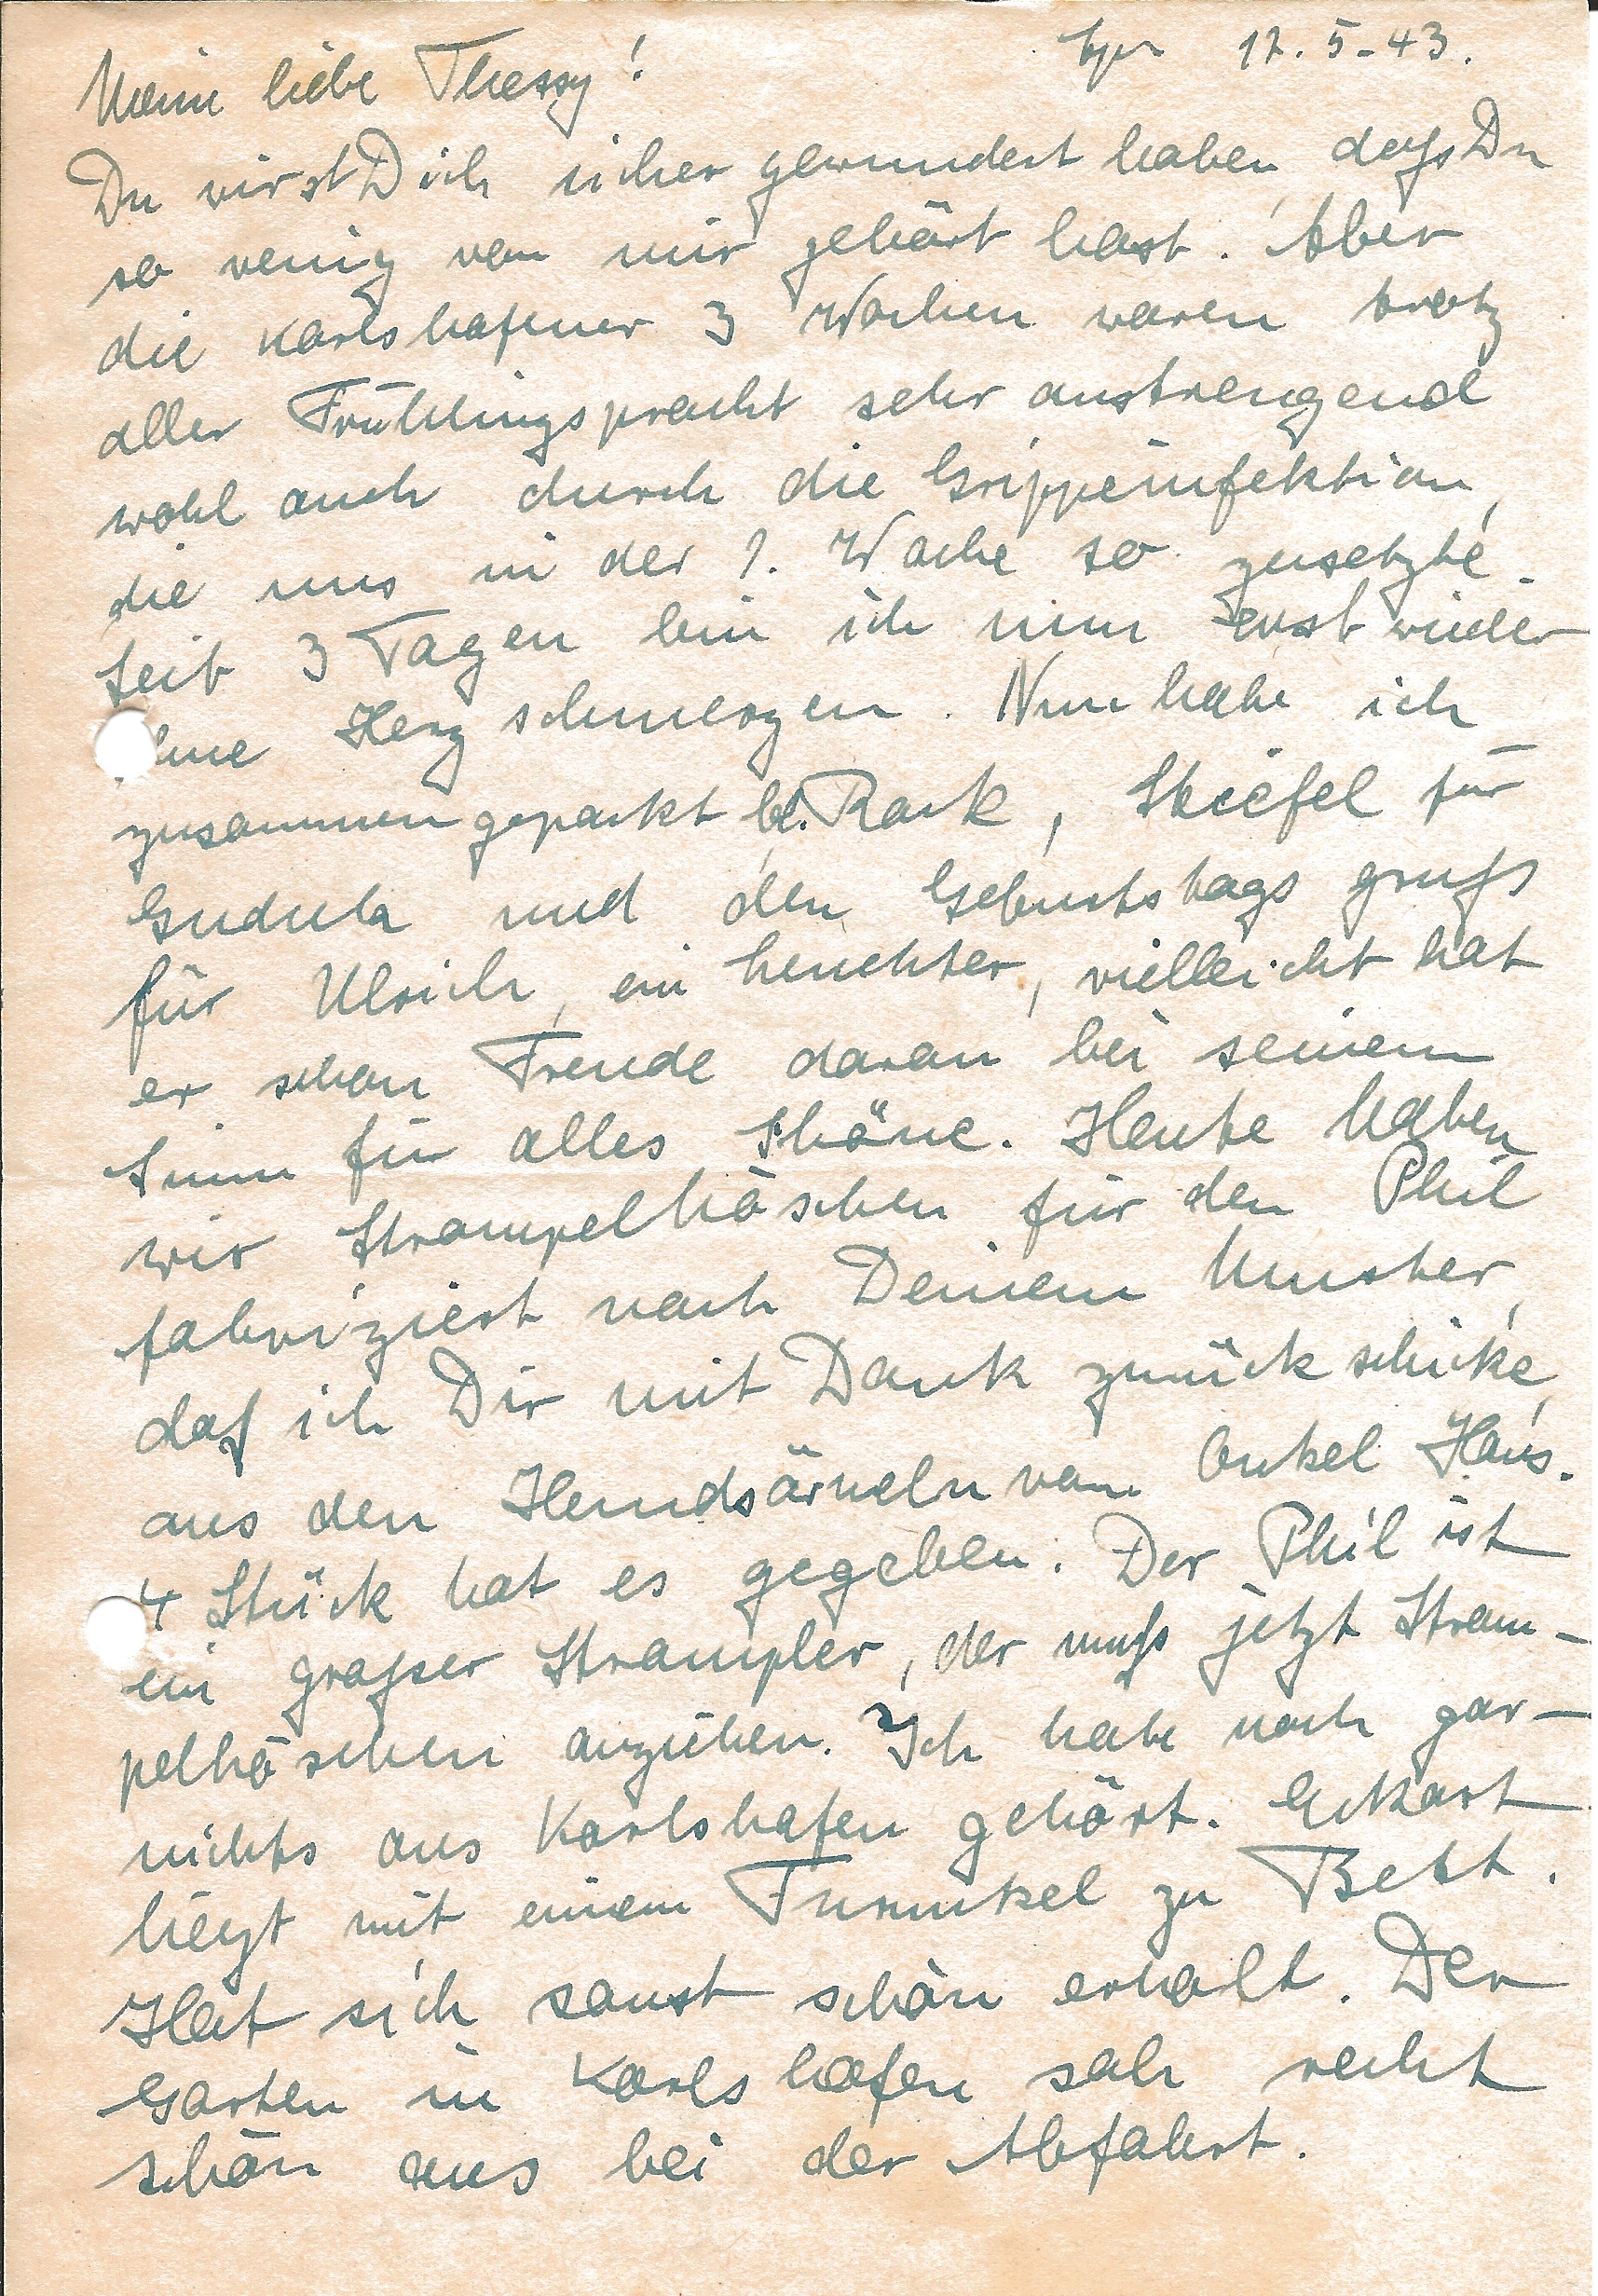 17. 5 - 43.
Meine liebe Thessy!
Du wirst Dich sicher gewundert haben, dass Du
so wenig von mir gehört hast. Aber
die Karlshafener 3 Wochen waren trotz
aller Frühlingspracht sehr anstrengend
wohl auch durch die Grippeinfektion,
die uns in der 1. Woche so zusetzte.
Seit 3 Tagen bin ich nun erst wieder
ohne Herzschmerzen. Nun habe ich
zusammengepackt bl. Rock, Stiefel für
Gudula und den Geburtstagsgruss
für Ulrich, ein Leuchter, vielleicht hat
er schon Freude daran bei seinem
Sinn für alles Schöne. Heute haben
wir Strampelhöschen für den Phil
fabriziert nach Deinem Muster,
das ich Dir mit Dank zurückschicke,
aus den Hemdsärmeln von Onkel Hans.
4 Stück hat es gegeben. Der Phil ist
ein grosser Strampler, der muss jetzt Stram-
pelhöschen anziehen. Ich habe noch gar-
nichts aus Karlshafen gehört. Eckart
liegt mit einem Furunkel zu Bett.
Hat sich sonst schön erholt. Der
Garten in Karlshafen sah recht
schön aus bei der Abfahrt.